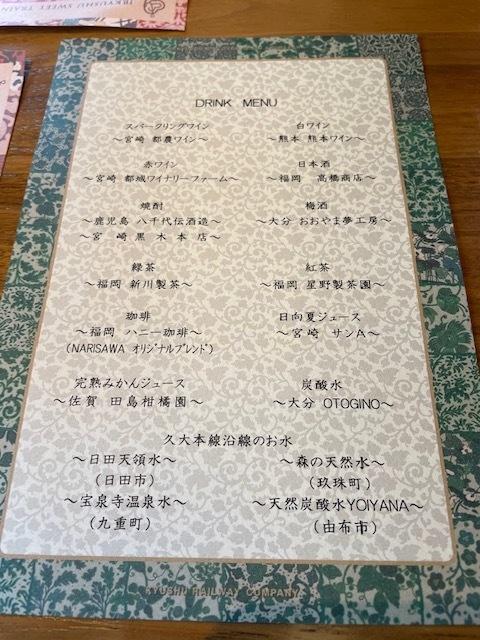 JRKYUSHU SWEET TRAIN
DRINK MENU
スパークリングワイン
～宮崎 都農ワイン～
白ワイン
～熊本 熊本ワイン～
赤ワイン
～宮崎 都城ワイナリーファーム～
日本酒
～福岡 高橋商店～
焼酎
～鹿児島 八千代伝酒造～
～宮崎黒木本店～
梅酒
～大分 おおやま夢工房～
緑茶
～福岡 新川製茶～
紅茶
～福岡 星野製茶園～
珈琲
～福岡 ハニー珈琲～
(NARISAWA オリジナルブレンド)
日向夏ジュース
～宮崎 サンA～
完熟みかんジュース
～佐賀 田島柑橘園～
炭酸水
～大分 OTOGINO～
久大本線沿線のお水
～日田天領水～
(日田市)
～森の天然水～
(玖珠町)
～宝泉寺温泉水～
(九重町)
～天然炭酸水YOIYANA～
(由布市)
KYUSHU RAILWAY COMPANY